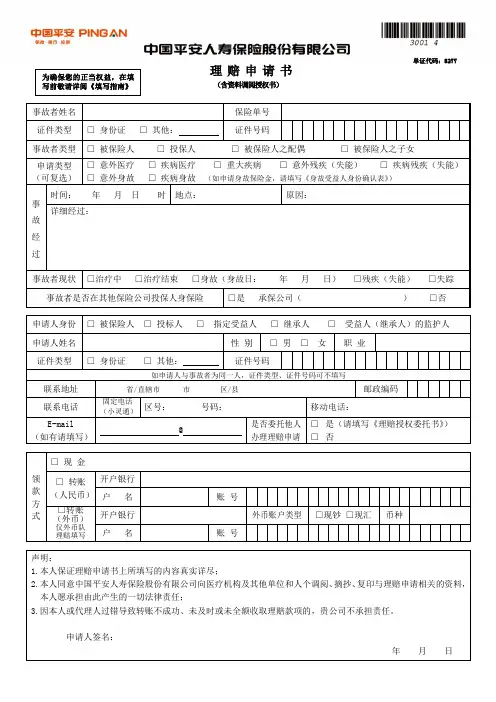 中国平安 PING AN
保险·银行·投资
3001 4
中国平安人寿保险股份有限公司
单证代码：8277
为确保您的正当权益，在填
写前敬请详阅《填写指南》
理 赔 申 请 书
（含资料调阅授权书）
事故者姓名 保险单号
证件类型 □ 身份证 □ 其他： 证件号码
事故者类型 □ 被保险人 □ 投保人 □ 被保险人之配偶 □ 被保险人之子女
申请类型
（可复选）
□ 意外医疗 □ 疾病医疗 □ 重大疾病 □ 意外残疾（失能） □ 疾病残疾（失能）
□ 意外身故 □ 疾病身故 （如申请身故保险金，请填写《身故受益人身份确认表》）
事故经过
时间： 年 月 日 时 地点： 原因：
详细经过：
事故者现状 □治疗中 □治疗结束 □身故（身故日： 年 月 日） □残疾（失能） □失踪
事故者是否在其他保险公司投保人身保险 □是 承保公司（ ） □否
申请人身份 □ 被保险人 □ 投标人 □ 指定受益人 □ 继承人 □ 受益人（继承人）的监护人
申请人姓名 性 别 □ 男 □ 女 职 业
证件类型 □ 身份证 □ 其他： 证件号码
如申请人与事故者为同一人，证件类型、证件号码可不填写
联系地址 省/直辖市 市 区/县 邮政编码
联系电话 固定电话
（小灵通） 区号： 号码： 移动电话：
E-mail
（如有请填写）
@
是否委托他人
办理理赔申请
□ 是（请填写《理赔授权委托书》）
□ 否
领款方式
□ 现 金
□ 转账
（人民币）
开户银行
户 名 账 号
□转账
（外币）
仅外币队
理赔填写
开户银行 外币账户类型 □现钞 □现汇 币种
户 名 账 号
声明：
1.本人保证理赔申请书上所填写的内容真实详尽；
2.本人同意中国平安人寿保险股份有限公司向医疗机构及其他单位和人个调阅、摘抄、复印与理赔申请相关的资料，
本人愿承担由此产生的一切法律责任；
3.因本人或代理人过错导致转账不成功、未及时或未全额收取理赔款项的，贵公司不承担责任。
申请人签名：
年 月 日